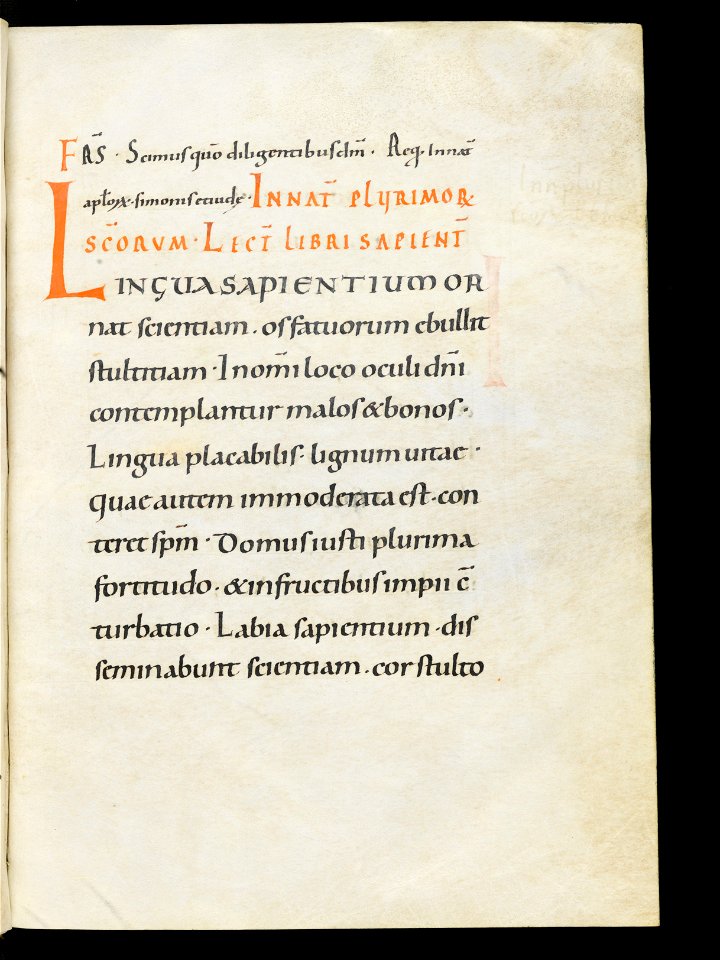 FRS̄ · Scimus quō diligentibus dm̄ · Req. Innat̄
apl̄oꝝ · simonis et iudę · INNAT̄ PLURIMOꝜ
SC̄ORVM · LECT̄ LIBRI SAPIENT̄
LINGUA SAPIENTIUM OR
nat scientiam . os fatuorum ebullit
stultitiam · In om̄i loco oculi dn̄i
contemplantur malos & bonos ·
Lingua placabilis · lignum uitae ·
quae autem immoderata est · con
teret spm̄ · Domus iusti plurima
fortitudo · & in fructibus impii c̄
turbatio · Labia sapientium · dis
seminabunt scientiam . cor stulto